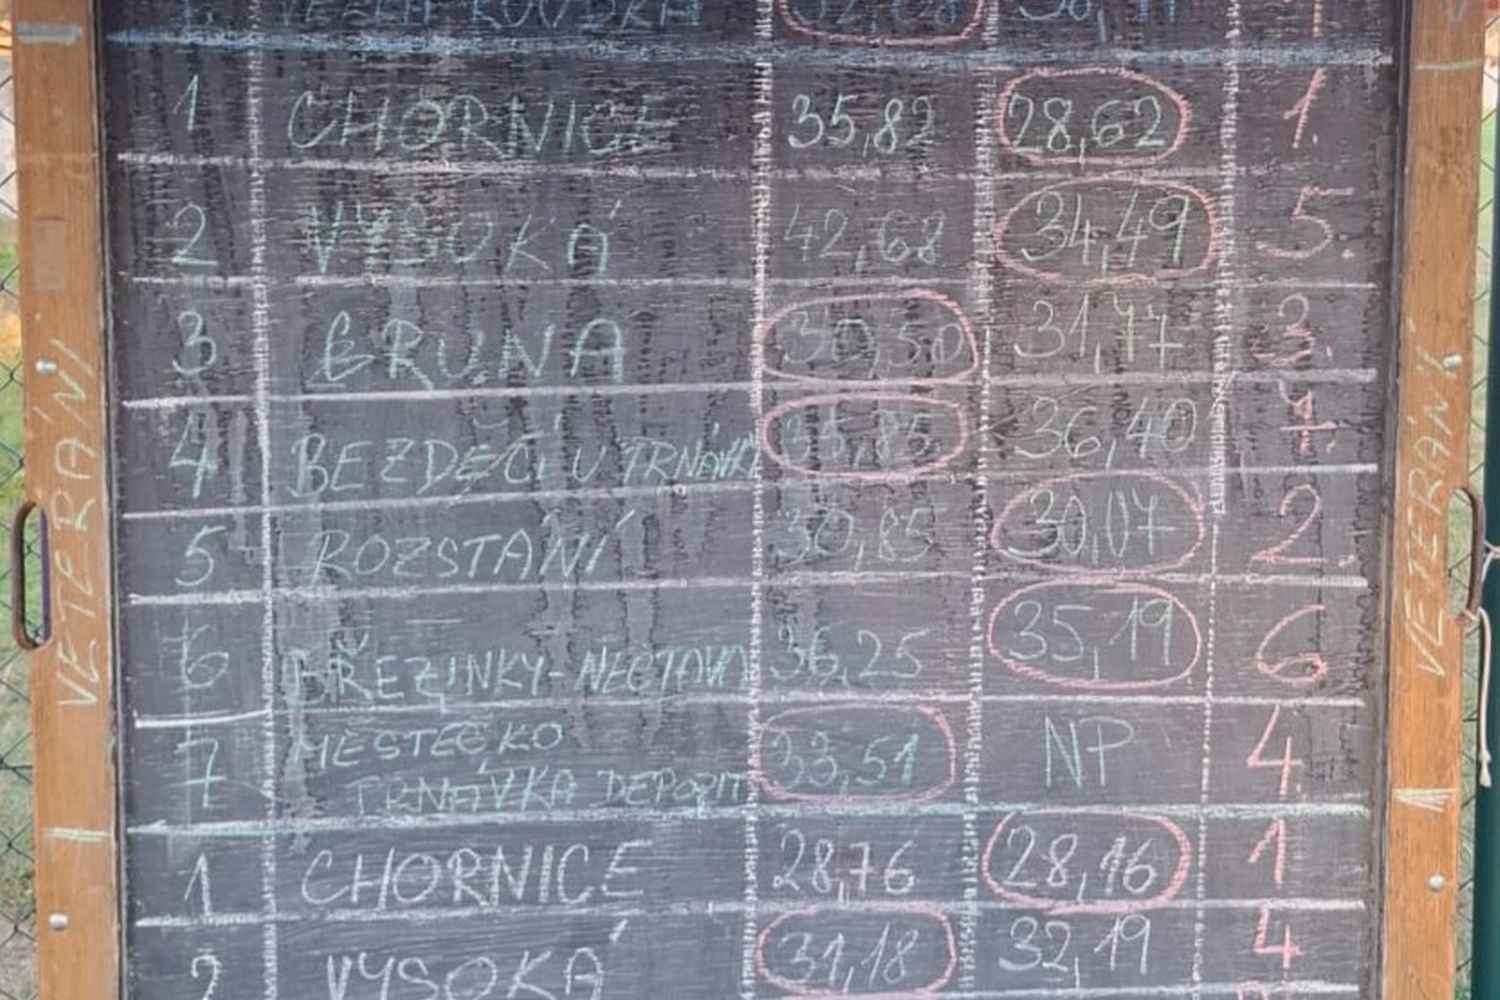 1 CHORNICE 35,82 28,62 1.
2 VYSOKÁ 42,68 34,49 5.
3 GRUNA 30,50 31,77 3.
4 BEZDĚČÍ U TRNÁVKY 35,85 36,40 7.
5 ROZSTÁNÍ 30,85 30,07 2.
6 BŘEZINKY-NECTAVA 36,25 35,19 6
7 MĚSTEČKO 33,51 NP 4.
TRNÁVKA DEPOZIT
1 CHORNICE 28,76 28,16 1
2 VYSOKÁ 31,18 32,19 4
VETERÁNI
VETERÁNI